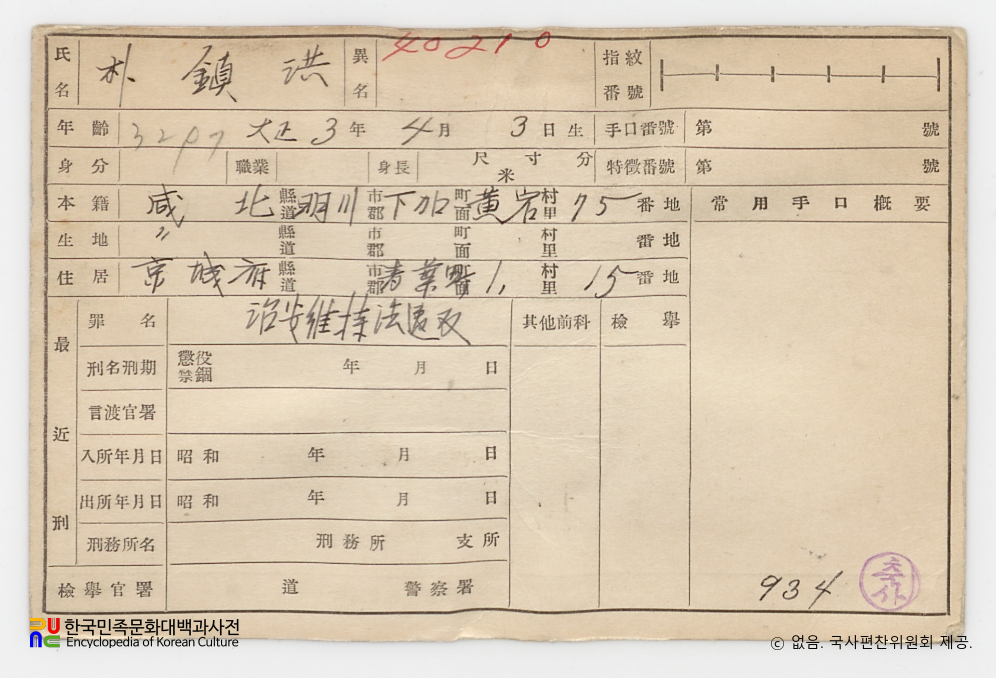 氏名 朴 鎭 洪 異名 40210 指紋番號
年齡 3297 大正 3年 4月 3日生 手口番號 第 號
身分 職業 身長 尺 寸 分 米 特徵番號 第 號
本籍 咸 北 縣道 明川 市郡 下加 町面 黃岩 村里 75 番地
常用手口概要
生地 〃 縣道 市郡 町面 村里 番地
住居 京城府 縣道 市郡 町面 1, 村里 15 番地
最近刑
罪名 治安維持法違反 其他前科 檢擧
刑名刑期 懲役 禁錮 年 月 日
言渡官署
入所年月日 昭和 年 月 日
出所年月日 昭和 年 月 日
刑務所名 刑務所 支所
檢擧官署 道 警察署
934
한국민족문화대백과사전
Encyclopedia of Korean Culture
ⓒ 없음. 국사편찬위원회 제공.